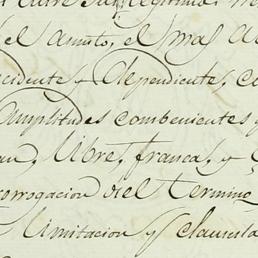 el Asunto, el mas
incidente y dependiente, co
amplitudes combenientes y
libre, franca, y
prorrogacion del termino
limitacion y clausula